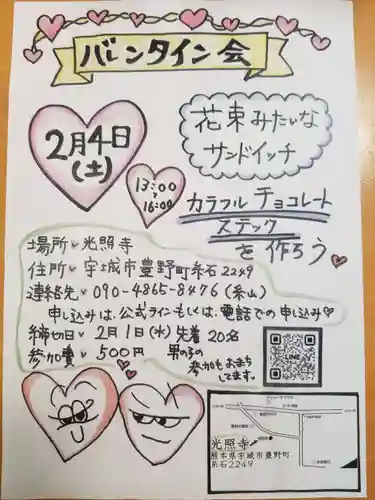 バレンタイン会
2月4日
(土)
13:00
〜
16:00
花束みたいな
サンドイッチ
カラフルチョコレート
ステック
を作ろう
場所 光照寺
住所 宇城市豊野町糸石2249
連絡先 090-4865-8476(糸山)
申し込みは、公式ラインもしくは、電話での申し込み
締切日 2月1日(水)先着20名
参加費 500円 男の子の
参加もおまち
してます。
LINE
光照寺
熊本県宇城市豊野町
糸石2249